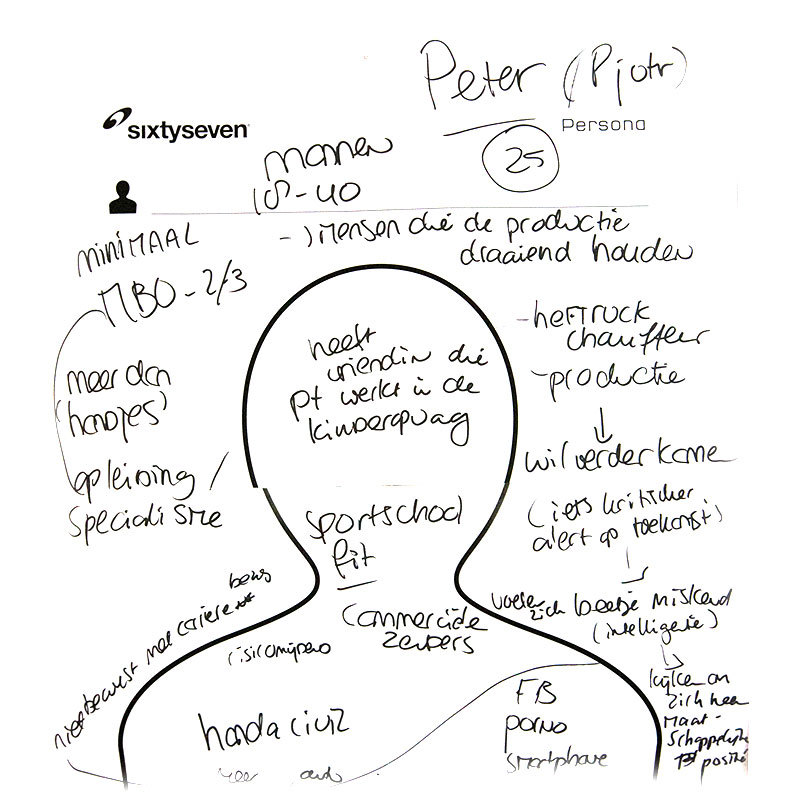 Peter (Pjotr)
sixtyseven
Persona
25
mannen
18-40
-) Mensen die de productie
draaiend houden
MINIMAAL
MBO-2/3
meer dan
'handjes'
opleiding /
Specialisme
heeft
vriendin die
pt werkt in de
kinderopvang
- HEFTRUCK
chauffeur
- productie
wil verder kome
(iets kritischer
alert op toekomst)
sportschool
fit
Commerciële
zenders
voelen
zich beetje miskend
(intelligentie)
kijken om
zich heen
Maat-
Schappelijke
positie
niet bewust met cariere
bezig
risicomijdend
honda civic
FB
porno
smartphone